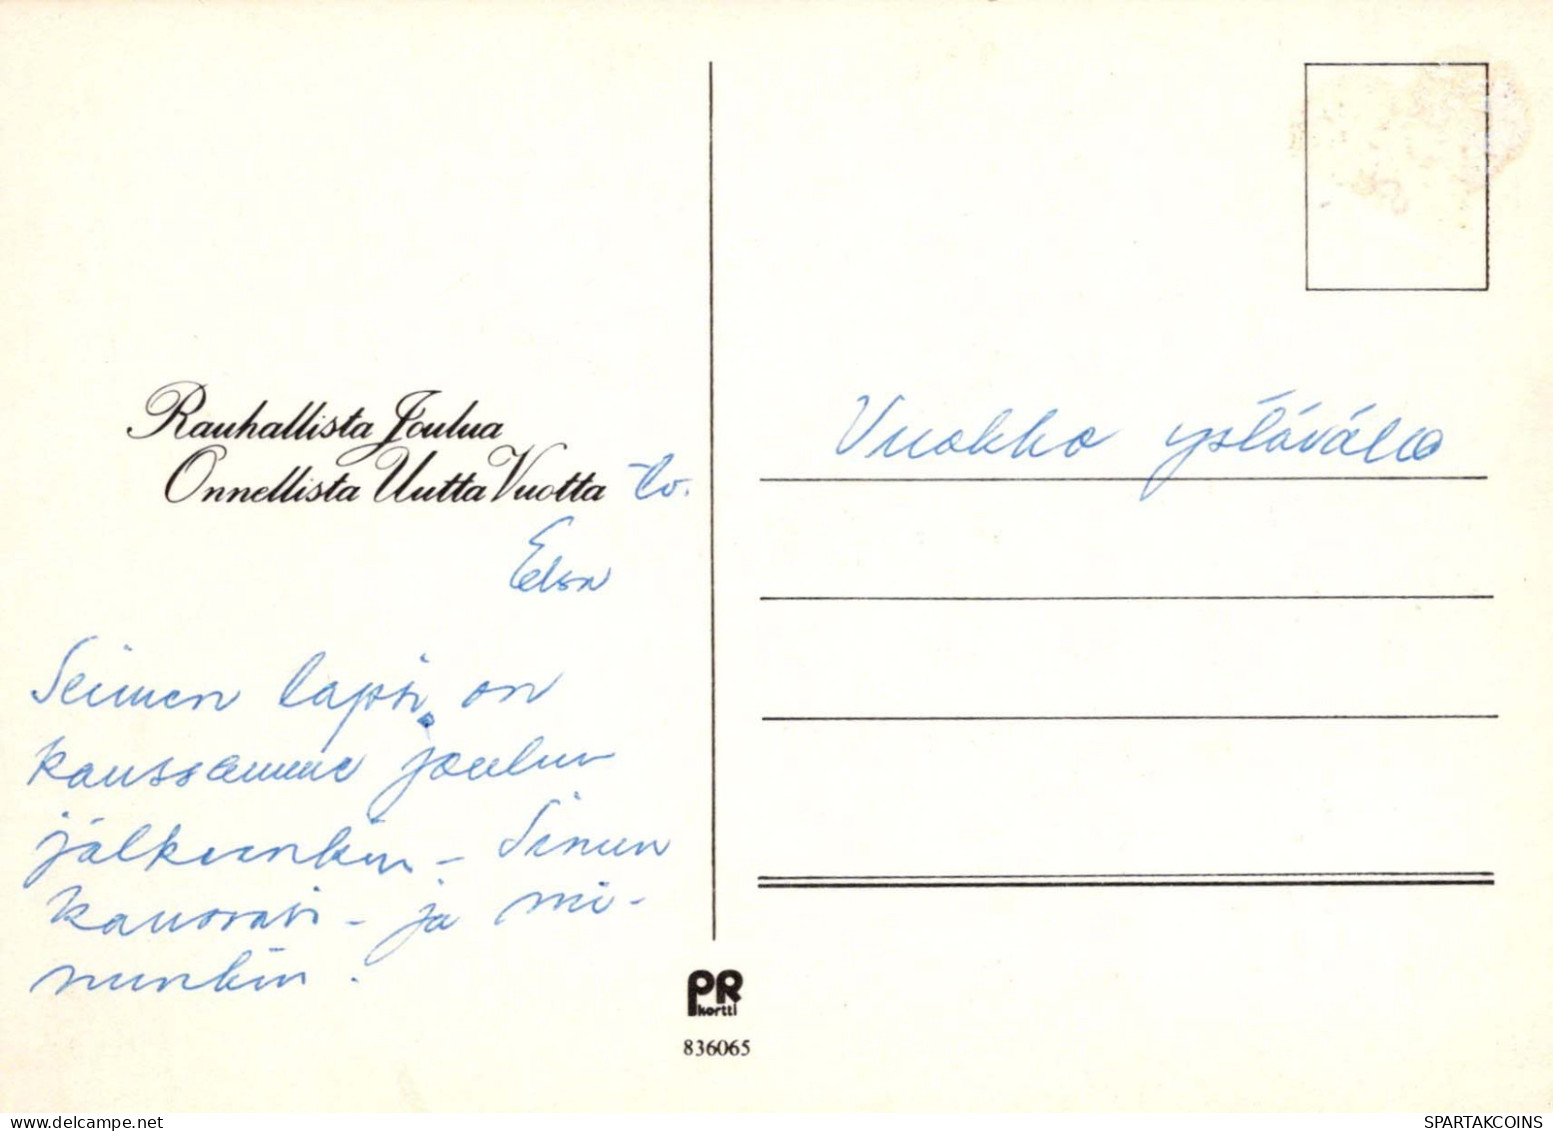 Rauhallista Joulua
Onnellista Uutta Vuotta tv.
Elsa
Seimen lapsi on
kanssamme joulun
jälkeenkin - Sinun
kanssasi - ja mi-
nunkin.
Vuokko ystävälle
PR
kortti
836065
www.delcampe.net
SPARTAKCOINS